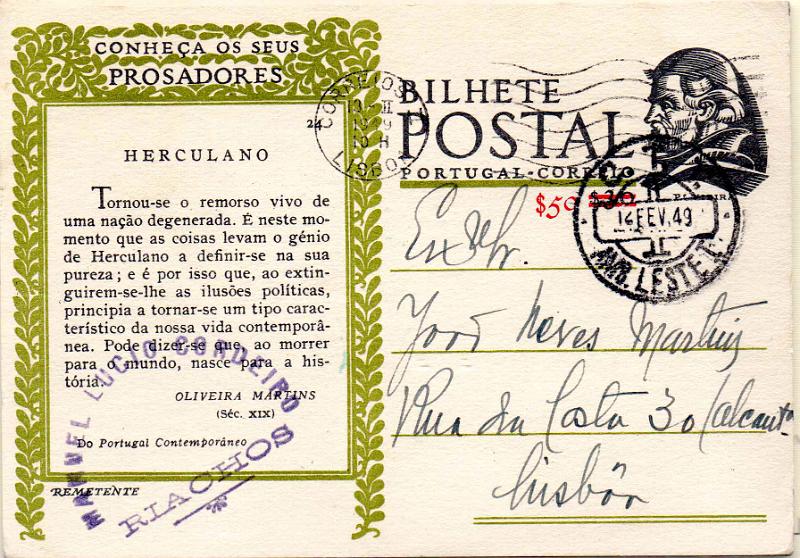 CONHEÇA OS SEUS
PROSADORES
24
HERCULANO
Tornou-se o remorso vivo de
uma nação degenerada. É neste mo-
mento que as coisas levam o génio
de Herculano a definir-se na sua
pureza; e é por isso que, ao extin-
guirem-se-lhe as ilusões políticas,
principia a tornar-se um tipo carac-
terístico da nossa vida contemporâ-
nea. Pode dizer-se que, ao morrer
para o mundo, nasce para a his-
tória.
OLIVEIRA MARTINS
(Séc. XIX)
Do Portugal Contemporâneo
REMETENTE
MANUEL LUCIO CORDEIRO
RIACHOS
CORREIOS
LISBOA
BILHETE
POSTAL
PORTUGAL-CORREIO
$50 $30
14 FEV. 49
AMB. LESTE I.
João Neves Martins
Rua da Costa 30 (Alcant
Lisbôa